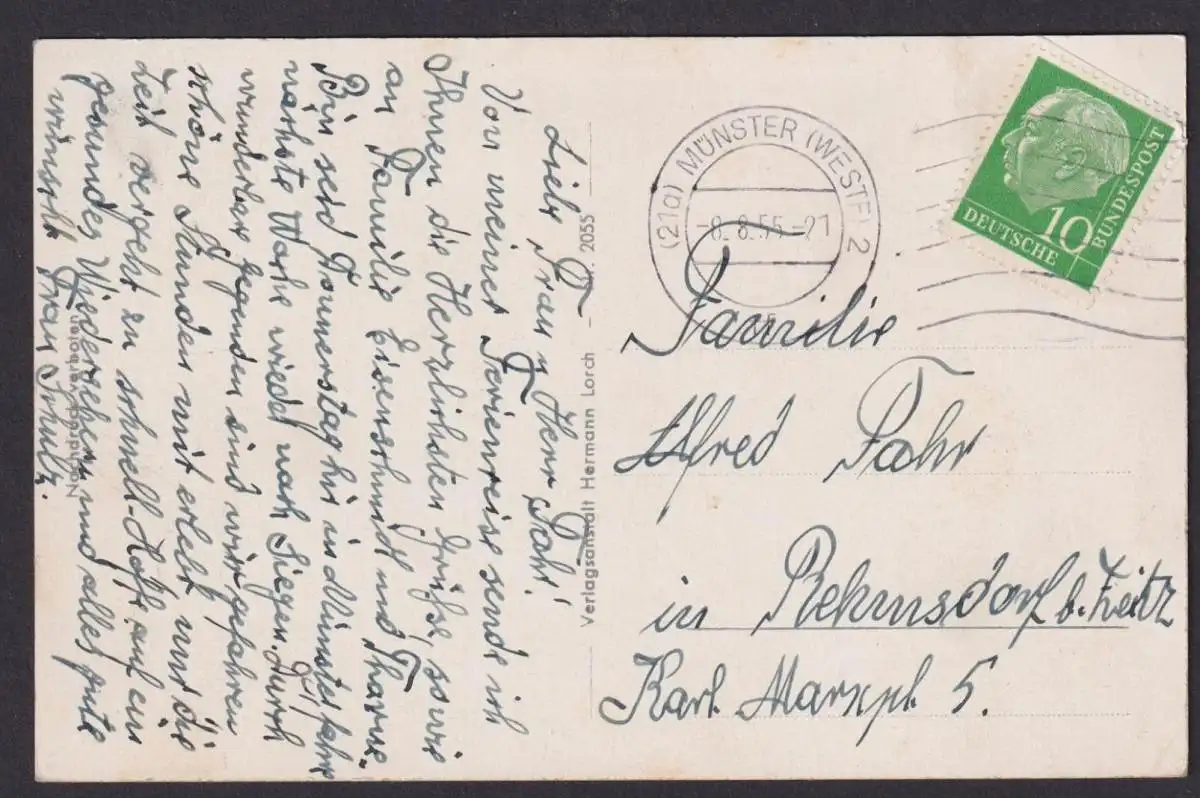 Liebe Frau u Herr Fahr!
Von meiner Ferienreise sende ich
Ihnen die Herzlichsten Grüße, sowie
an Familie Eisenschmidt und
Bin seid Donnerstag hir in Münster fahre
nächste Woche wieder nach Siegen. Durch
wunderbare Gegenden sind wir gefahren
schöne Stunden mit erlebt nur die
Zeit vergeht zu schnell. Hoffe auf ein
gesundes Wiedersehen und alles gute
wünscht Frau Schulz.
Nachdruck verboten
Verlagsanstalt Hermann Lorch – 2055
(21a) MÜNSTER (WESTF) 2
-8.8.55-21
DEUTSCHE
10
BUNDESPOST
Familie
Alfred Fahr
in Rehmsdorf b. Zeitz
Karl Marxpl. 5.